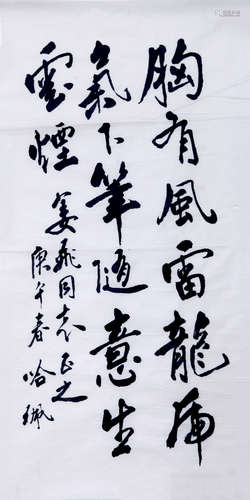 胸有風雷龍虎
氣下筆隨意生
雲煙
姜飛同志正之
庚午春 哈珮